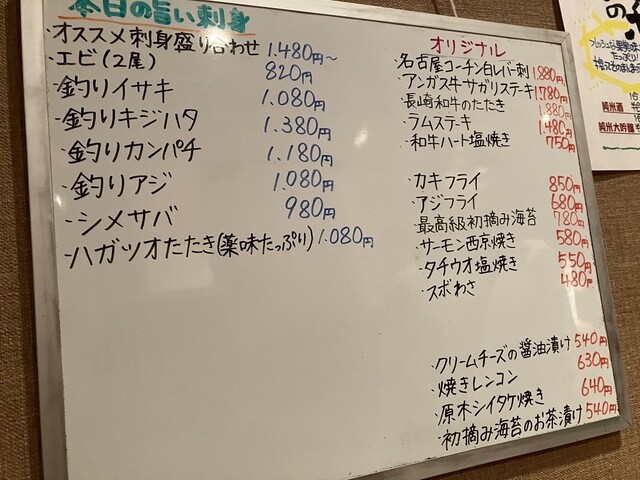 本日の旨い刺身
・オススメ刺身盛り合わせ 1.480円〜
・エビ(2尾) 820円
・釣りイサキ 1.080円
・釣りキジハタ 1.380円
・釣りカンパチ 1.180円
・釣りアジ 1.080円
・シメサバ 980円
・ハガツオたたき(薬味たっぷり) 1.080円
オリジナル
・名古屋コーチン白レバー刺 1.880円
・アンガス牛サガリステーキ 1.780円
・長崎和牛のたたき 1.880円
・ラムステーキ 1.480円
・和牛ハート塩焼き 750円
・カキフライ 850円
・アジフライ 680円
・最高級初摘み海苔 780円
・サーモン西京焼き 580円
・タチウオ塩焼き 550円
・スボわさ 480円
・クリームチーズの醤油漬け 540円
・焼きレンコン 630円
・原木シイタケ焼き 640円
・初摘み海苔のお茶漬け 540円
の
たっぷり!
純米酒
純米大吟醸